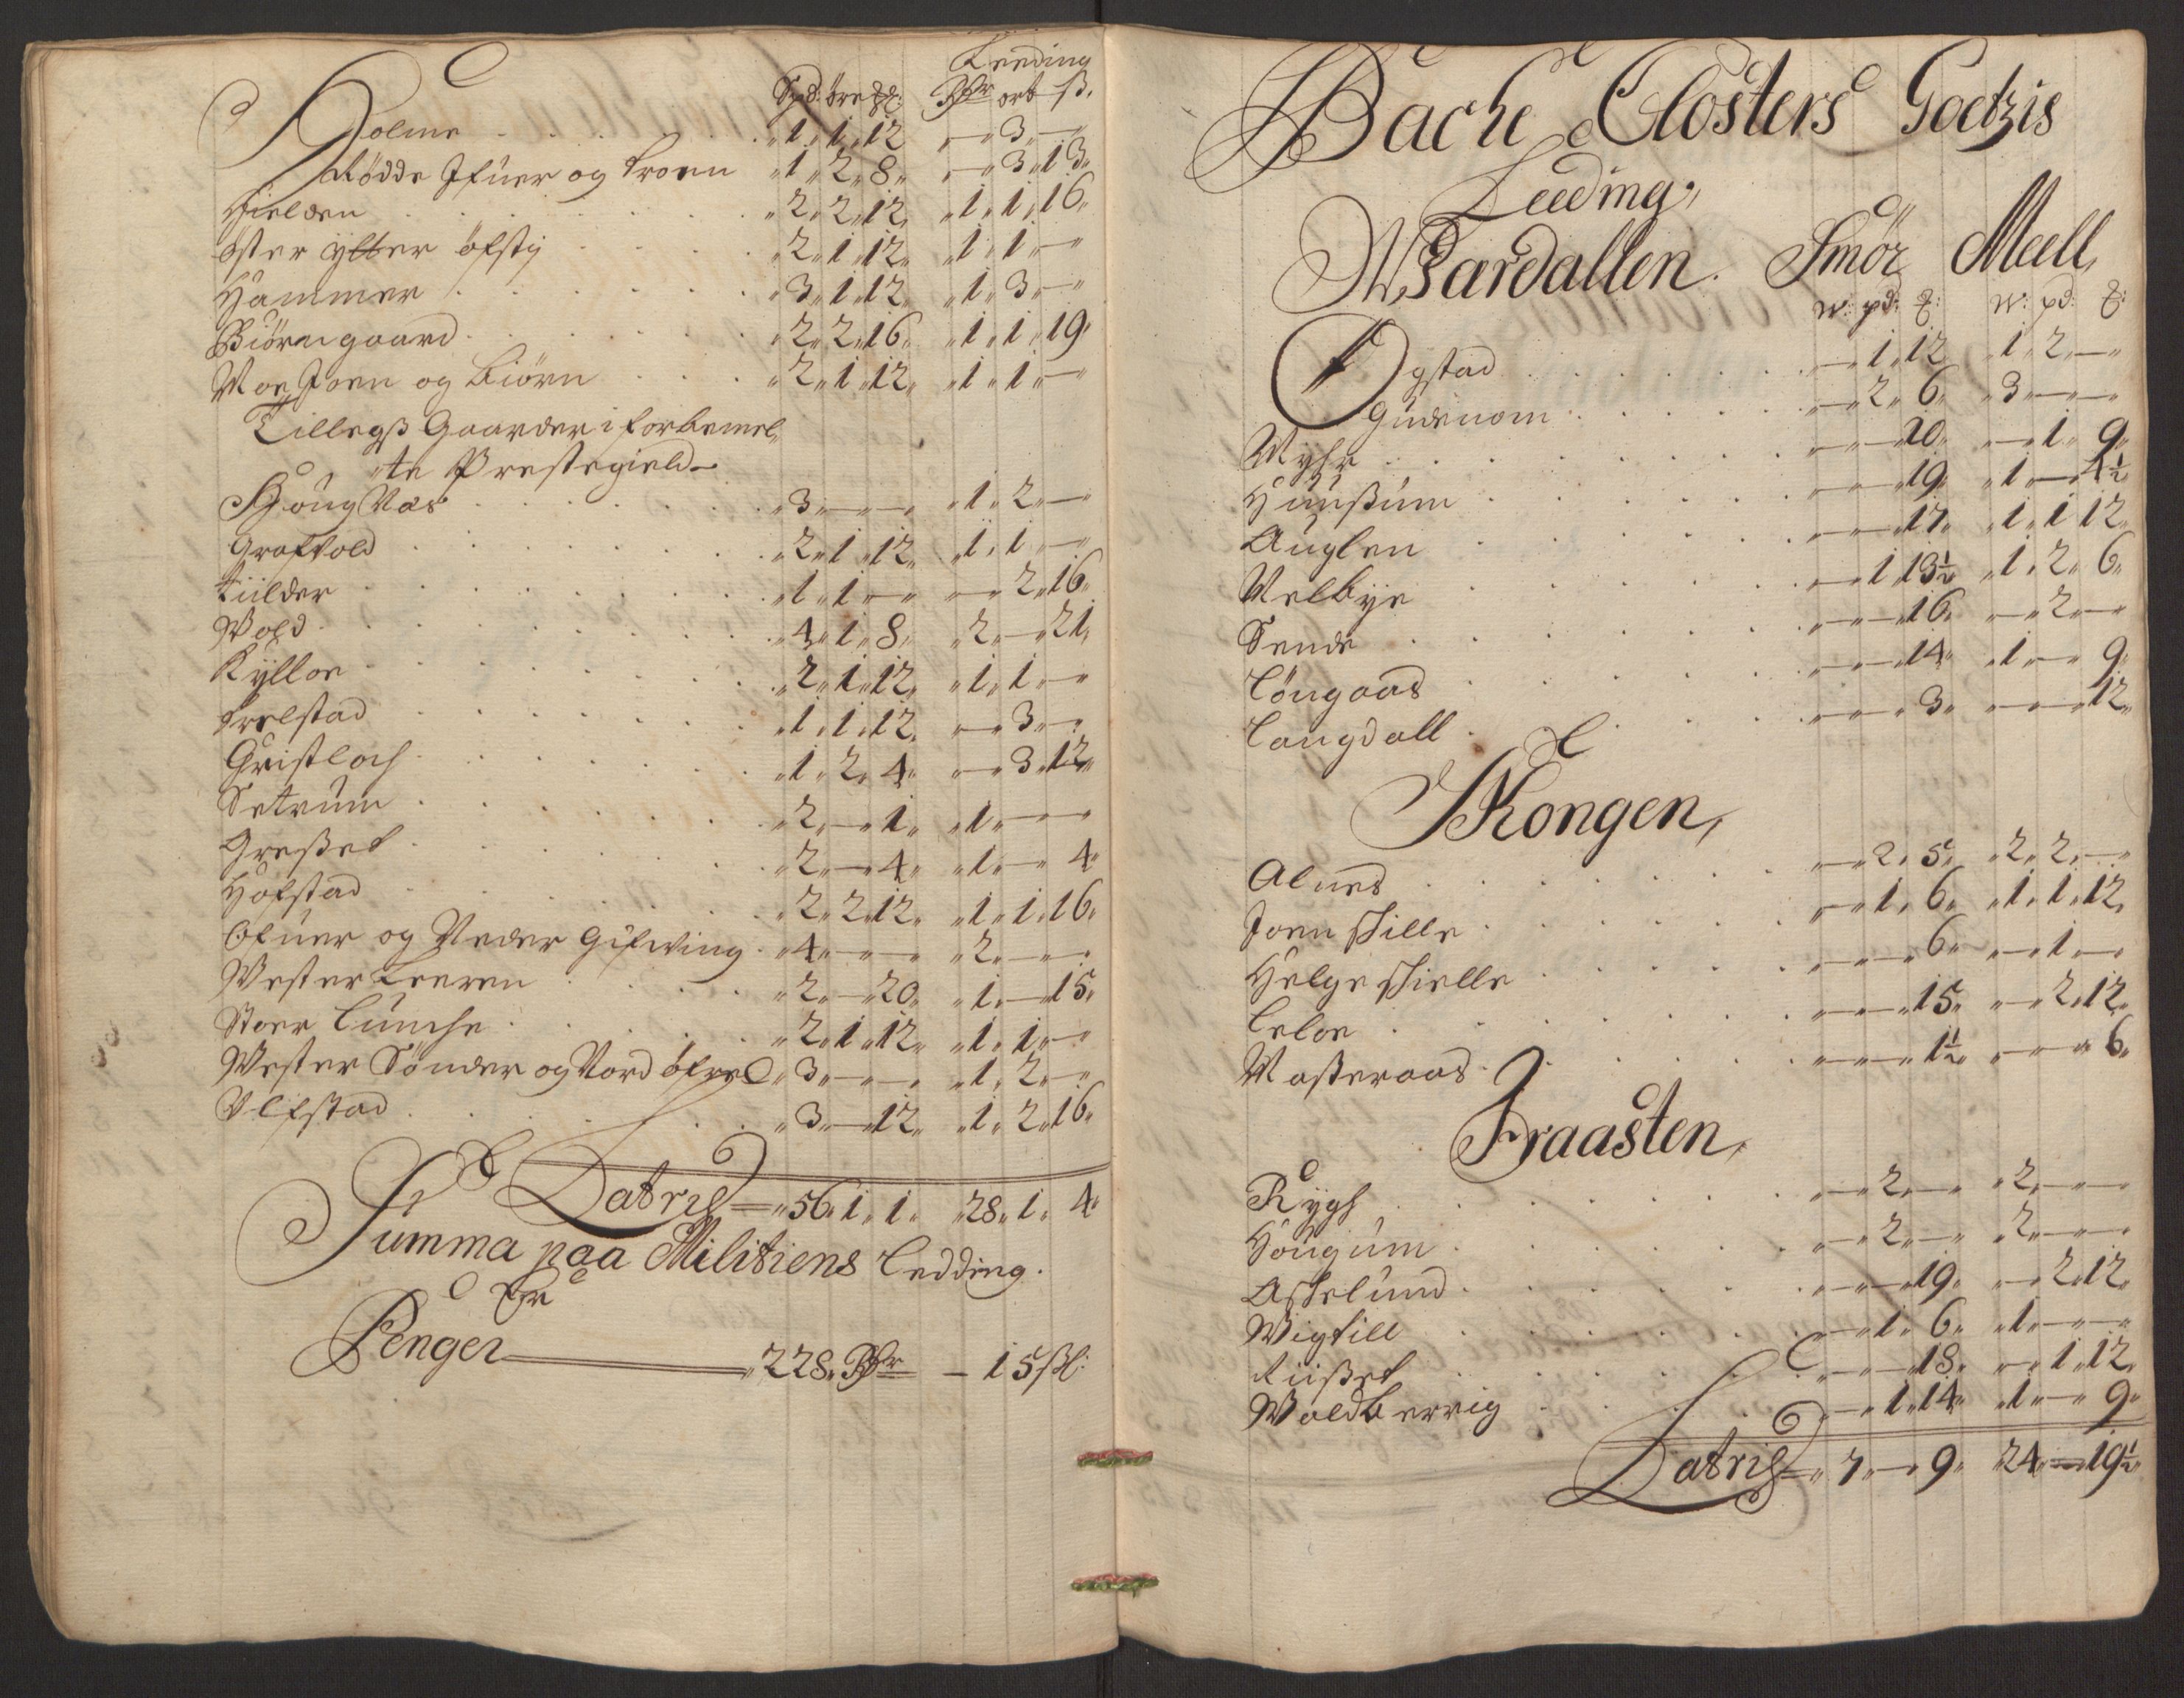 Leeding
Spd: öre ₰: Rdr ort ß.
Holme . . . . . . "1"1"12 "—"3"—"
Rödde Ifuer og Troen "1"2"8" "—"3"13"
Hielden . . . . . "2"2"12 "1"1"16"
öster ytter öfsty . . . "2"1"12" "1"1"—"
Hammer . . . . . "3"1"12 "1"3"—"
Biörngaard . . . . "2"2"16 "1"1"19"
Moe Joen og Biörn . . . "2"1"12" "1"1"—"
Tillegß Gaarder i forbemel,
te Prestegield
Houg Næs . . . . "3"—"—" "1"2"—"
Grafvold . . . . "2"1"12 "1"1"—"
tiilder . . . . "1"1"—" "—"2"16"
Vold . . . . "4"1"8" "2"—"21"
Kylloe . . . . "2"1"12 "1"1"—"
trelstad . . . . "1"1"12 "—"3"—"
Gristloch . . . . "1"2"4" "—"3"12"
Setrum . . . . "2"—"1" "1"—"—"
Greßet . . . . "2"—"4" "1"—"4"
Hofstad . . . . "2"2"12" "1"1"16"
Ofuer og Neder Gilswing . "4"—"—" "2"—"—"
Wester Leeren . . . "2"—"20" "1"—"15"
Stoer Lunche . . . "2"1"12" "1"1"—"
Wester Sönder og Nord öfrel "3"—"—" "1"2"—"
Ulfstad . . . . "3"—"12" "1"2"16"
Latris = "56"1"1" "28"1"4"
Summa paa Militiens Ledding.
Er
Penger — "228" Rdr — 15 ßl:
Bache Closters Goetzis
Leeding,
Wardallen. Smör Meell
w: pd: ₰: w: pd: ₰:
Ogstad . . . . "—"1"12 "1"2"—"
Gudenom . . . . "—"2"6" "3"—"—"
Myhr . . . . "—"—"20" "—"1"9"
Haußum . . . . "—"—"19" "1"—"4½
Auglen . . . . "—"—"17" "1"1"12"
Melbye . . . . "—"1"13½ "1"2"6"
Sende . . . . "—"—"16" "—"2"—"
Löngaas . . . . "—"—"14" "1"—"9"
Langdall . . . . "—"—"3" "—"—"12"
Skongen,
Alnes . . . . "—"2"5" "2"2"—"
Joen skille . . . . "—"1"6" "1"1"12
Helge skielle . . . . "—"—"6" "—"1"—"
Leloe . . . . "—"—"15" "—"2"12"
Maßeraas . . . . "—"—"1½ "—"—"6"
Fraasten,
Rygh . . . . "—"2"—" "2"—"—"
Hougum . . . . "—"2"—" "2"—"—"
Askelund . . . . "—"—"19" "—"2"12"
Wigtill . . . . "—"1"6" "1"—"—"
Riißet . . . . "—"—"18" "—"1"12"
Woldberrig . . . . "—"1"14" "1"—"9"
Latris = "7"—"9" "24"—"19½"